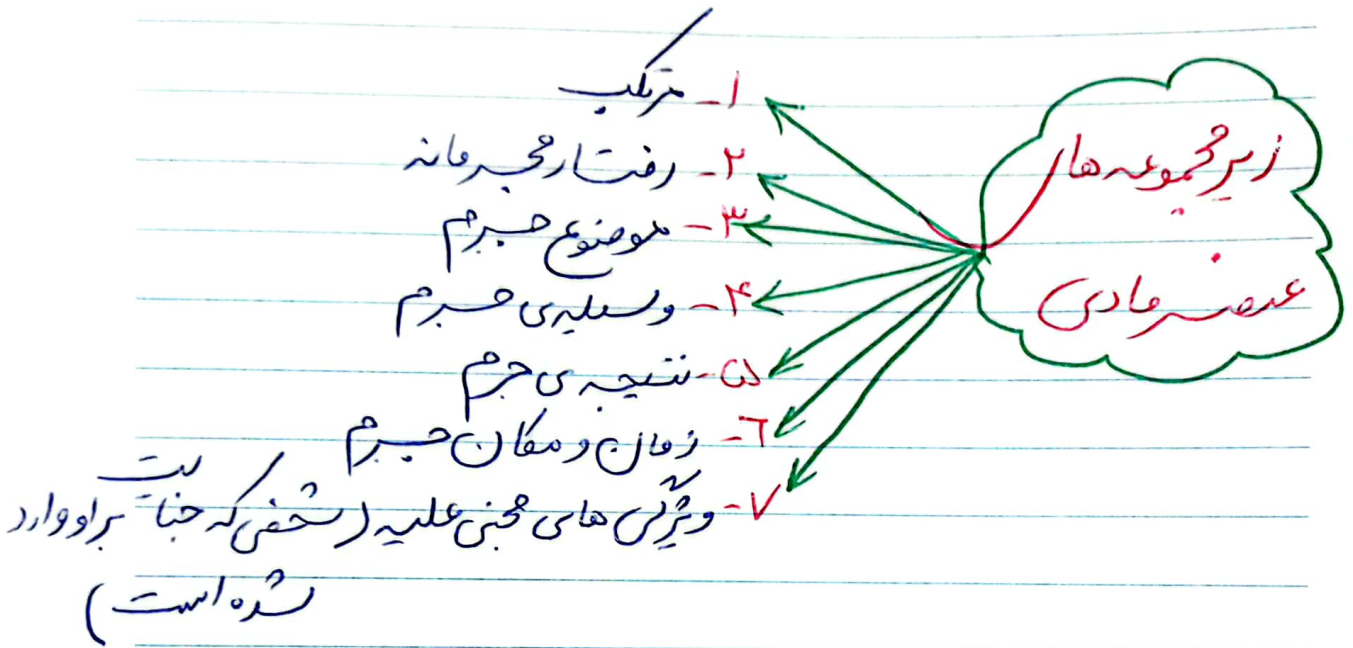 زیرمجموعه های
عنصر مادی
۱- مرتکب
۲- رفتار مجرمانه
۳- موضوع جرم
۴- وسیله ی جرم
۵- نتیجه ی جرم
۶- زمان و مکان جرم
۷- ویژگی های مجنی علیه (شخصی که جنایت بر او وارد
شده است)